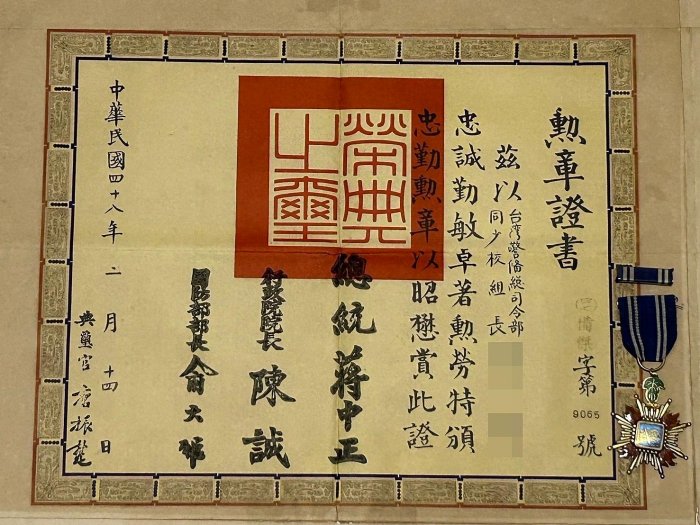 勳章證書
備
字第
9065
號
茲以
台湾警備総司令部
同少校組長
忠誠勤敏卓著勳勞特頒
忠勤勳章以昭懋賞此證
榮典之璽
總統 蔣中正
行政院院長 陳誠
國防部部長 俞大維
中華民國四十八年二月十四日
典璽官 唐振楚